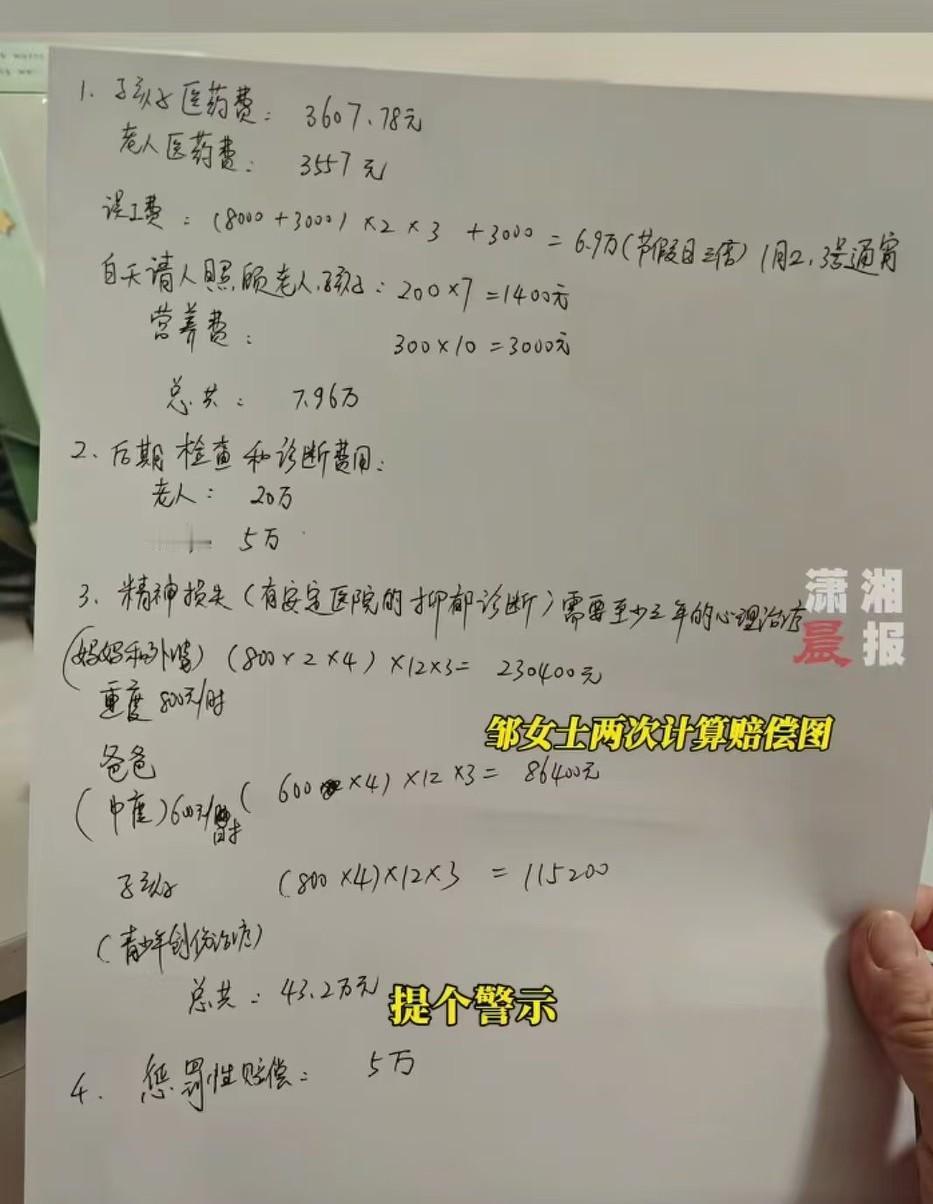 1、孩子医药费: 3607.78元
老人医药费: 3557元
误工费: (8000+3000)×2×3+3000=6.9万(节假日三倍) 1月2,3号通宵
白天请人照顾老人,孩子: 200×7=1400元
营养费: 300×10=3000元
总共: 7.96万
2、后期检查和诊断费用:
老人: 20万
5万
3、精神损失(有安定医院的抑郁诊断)需要至少三年的心理治疗
潇湘晨报
(妈妈和外婆) (800×2×4)×12×3= 230400元
重度800元/时
邹女士两次计算赔偿图
爸爸
(中度)600元/时 (600×4)×12×3= 86400元
孩子 (800×4)×12×3 = 115200
(青少年创伤治疗)
总共: 43.2万元
提个警示
4、惩罚性赔偿: 5万